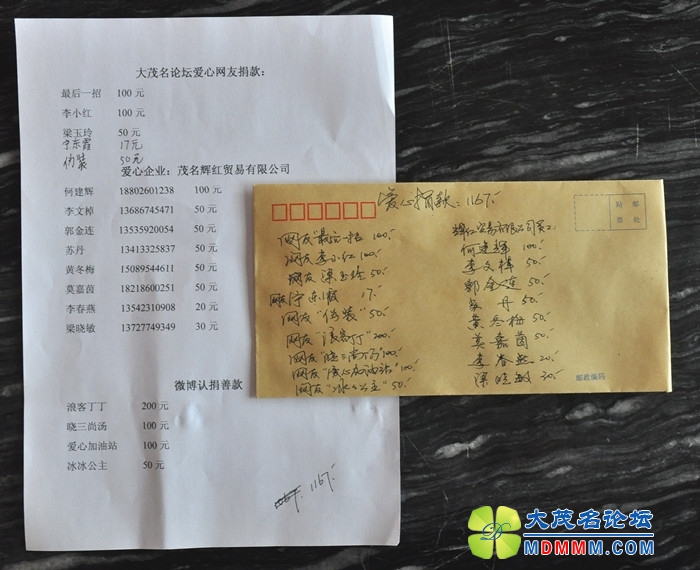 大茂名论坛爱心网友捐款：
最后一招 100 元
李小红 100 元
梁玉玲 50 元
宁东霞 17元
伪装 50元
爱心企业：茂名辉红贸易有限公司
何建辉 18802601238 100 元
李文棹 13686745471 50 元
郭金连 13535920054 50 元
苏丹 13413325837 50 元
黄冬梅 15089544611 50 元
莫嘉茵 18218600251 50 元
李春燕 13542310908 20 元
梁晓敏 13727749349 30 元
微博认捐善款
浪客丁丁 200 元
晓三尚汤 100 元
爱心加油站 100 元
冰冰公主 50 元
1167.
爱心捐款：1167.
贴邮
票处
网友"最后一招" 100.
网友李小红 100.
网友梁玉玲 50.
网友宁东霞 17.
网友"伪装" 50.
网友"浪客丁丁" 200.
网友"晓三尚汤" 100.
网友"爱心加油站" 100.
网友"冰冰公主" 50.
辉红贸易有限公司员工：
何建辉 100.
李文棹 50.
郭金连 50.
苏丹 50.
黄冬梅 50.
莫嘉茵 50.
李春燕 20.
梁晓敏 30.
邮政编码
大茂名论坛
MDMMM.COM